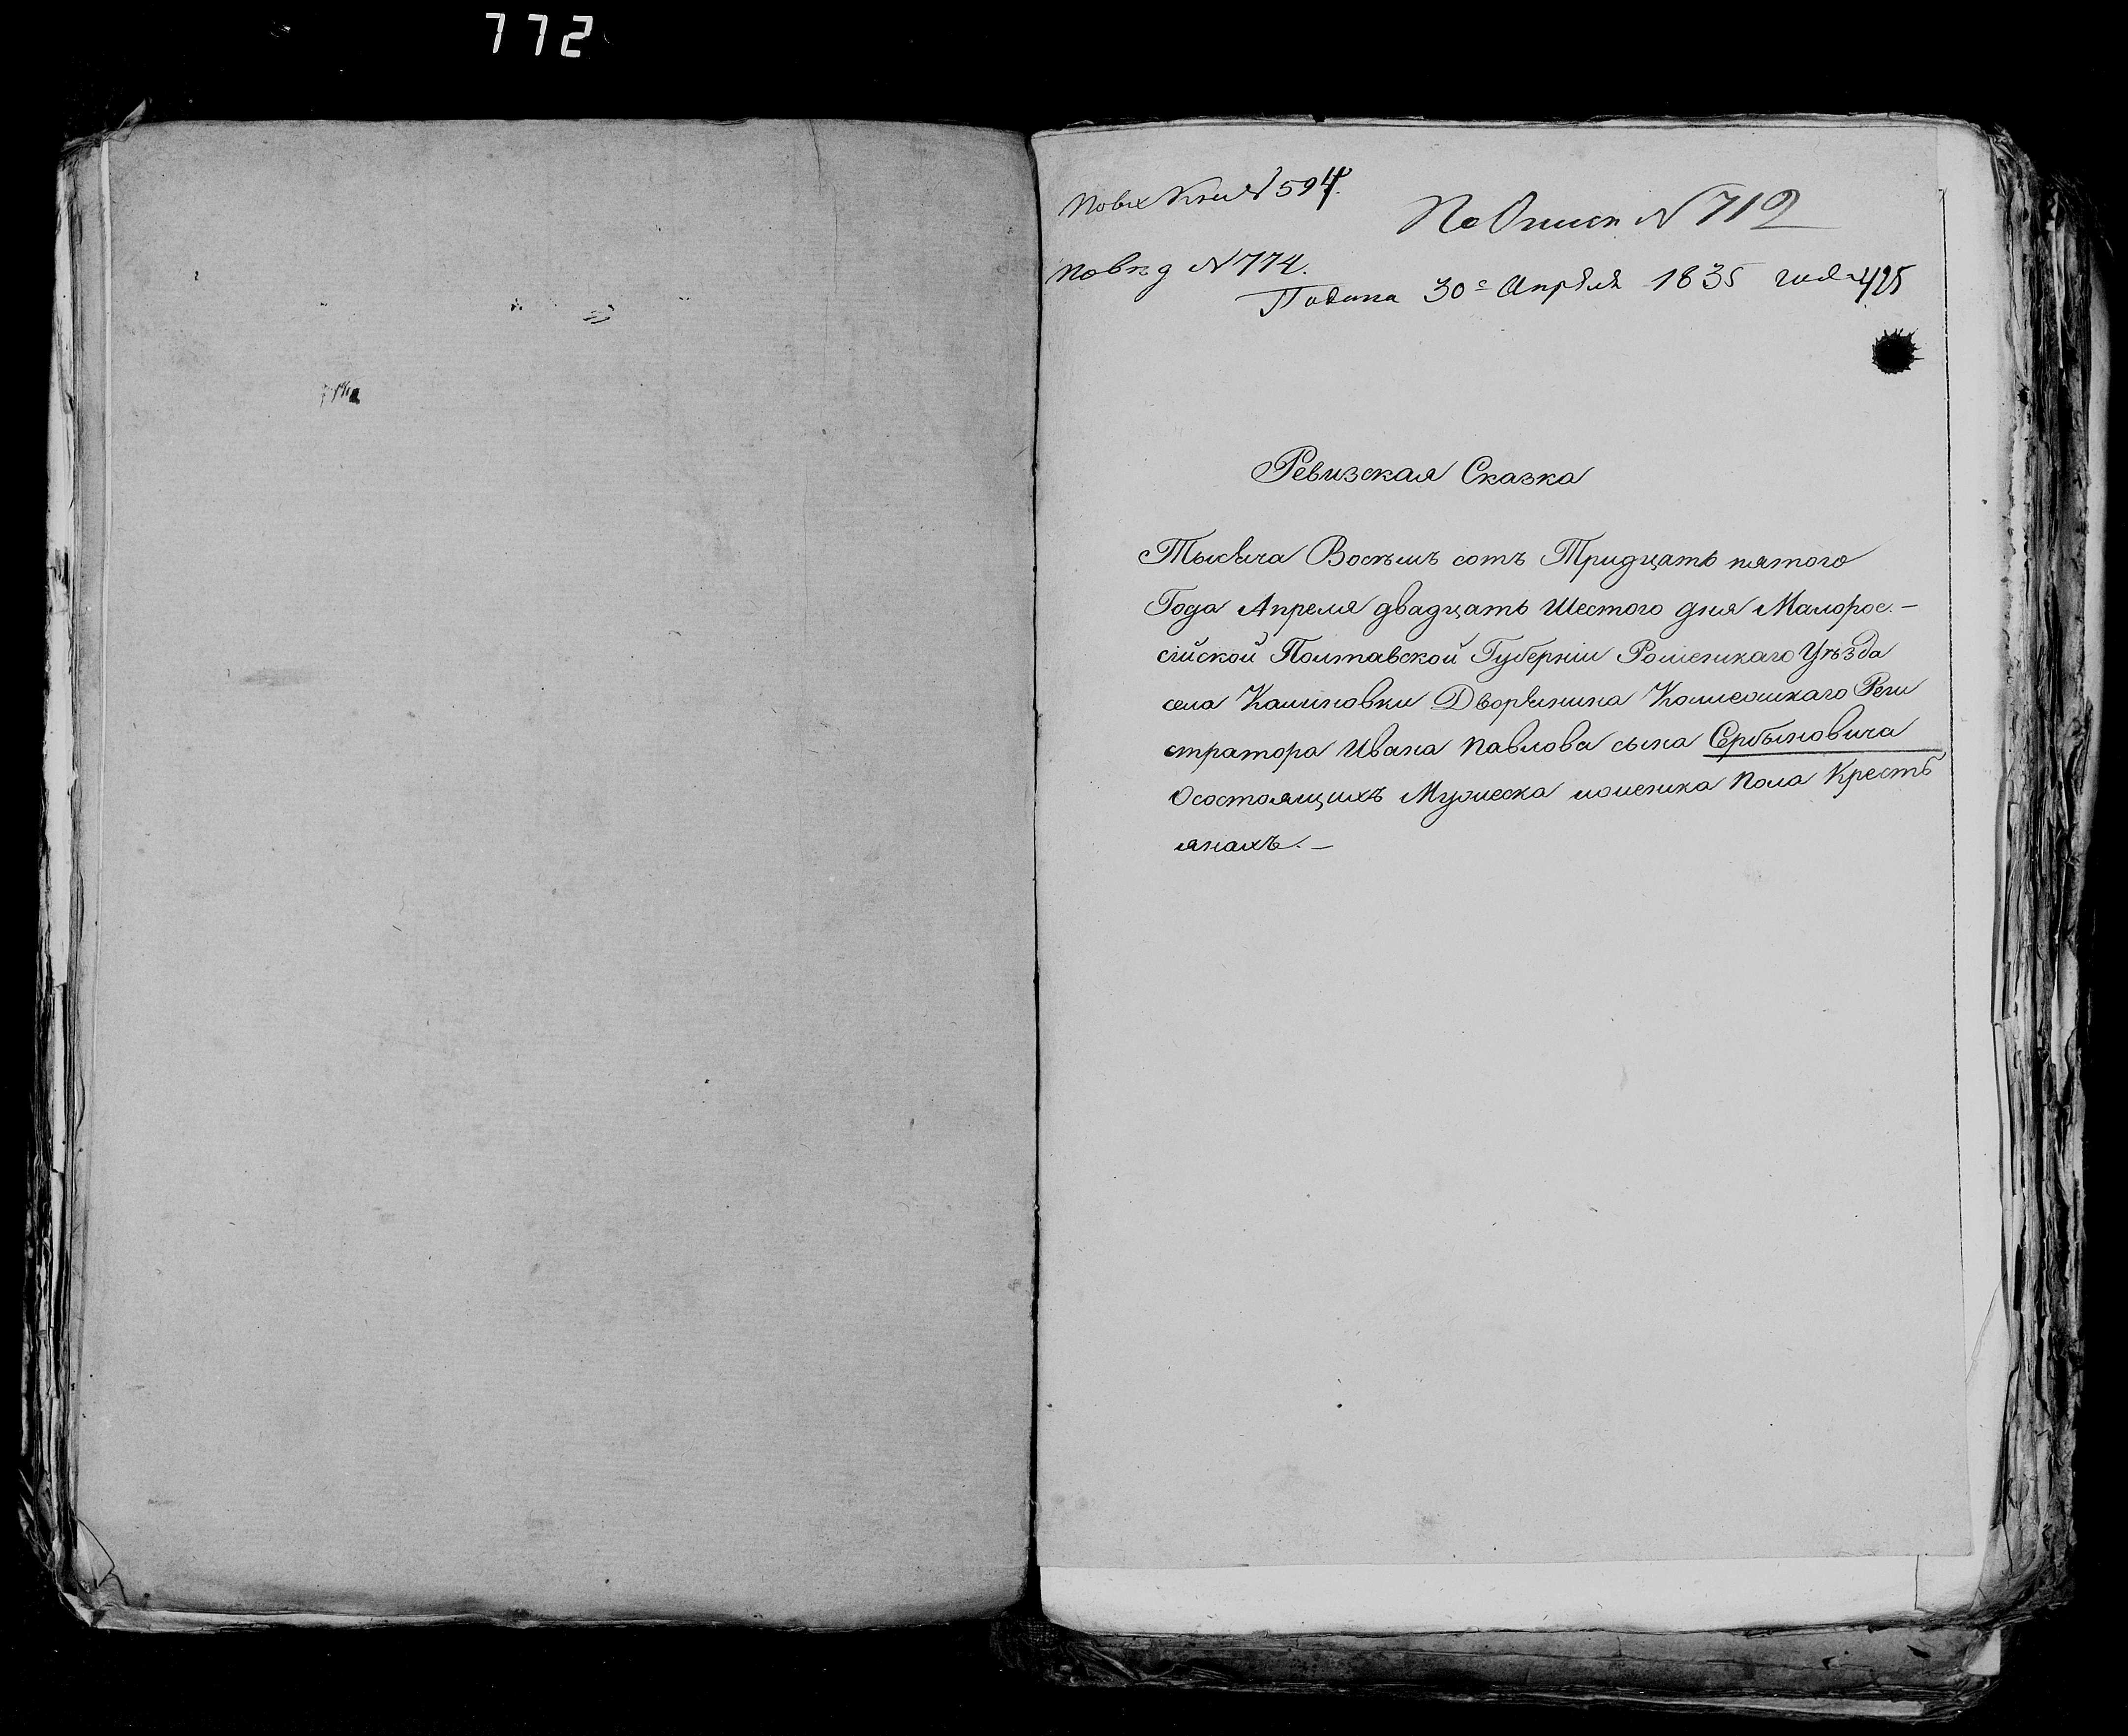 772
Повх Кни № 594.
По Описи № 712
Повк д № 774.
Подана 30е Апреля 1835 года 495
Ревизская Сказка
Тысяча Восѣмъ сотъ Тридцать пятого
Года Апреля двадцать Шестого дня Малорос.-
сійской Полтавской Губерніи Роменскаго Уѣзда
села Калиновки Дворянина Колежскаго Реги
стратора Ивана Павлова сына Сербыновича
Осостоящихъ Мужеска иженска Пола Кресть
янахъ. —